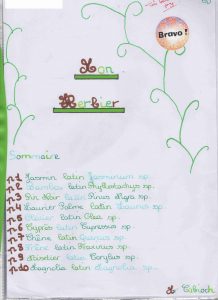 Bravo !
Mon
Herbier
Sommaire
n°1 Jasmin latin Jasminum sp.
n°2 Bambou latin Phyllostachys sp.
n°3 Pin Noir latin Pinus Nigra sp.
n°4 Laurier Palme latin Laurus sp.
n°5 Olivier latin Olea sp.
n°6 Cyprès latin Cupressus sp.
n°7 Chêne latin Quercus sp.
n°8 Frêne latin Fraxinus sp.
n°9 Noisetier latin Corylus sp.
n°10 Magnolia latin Magnolia sp.